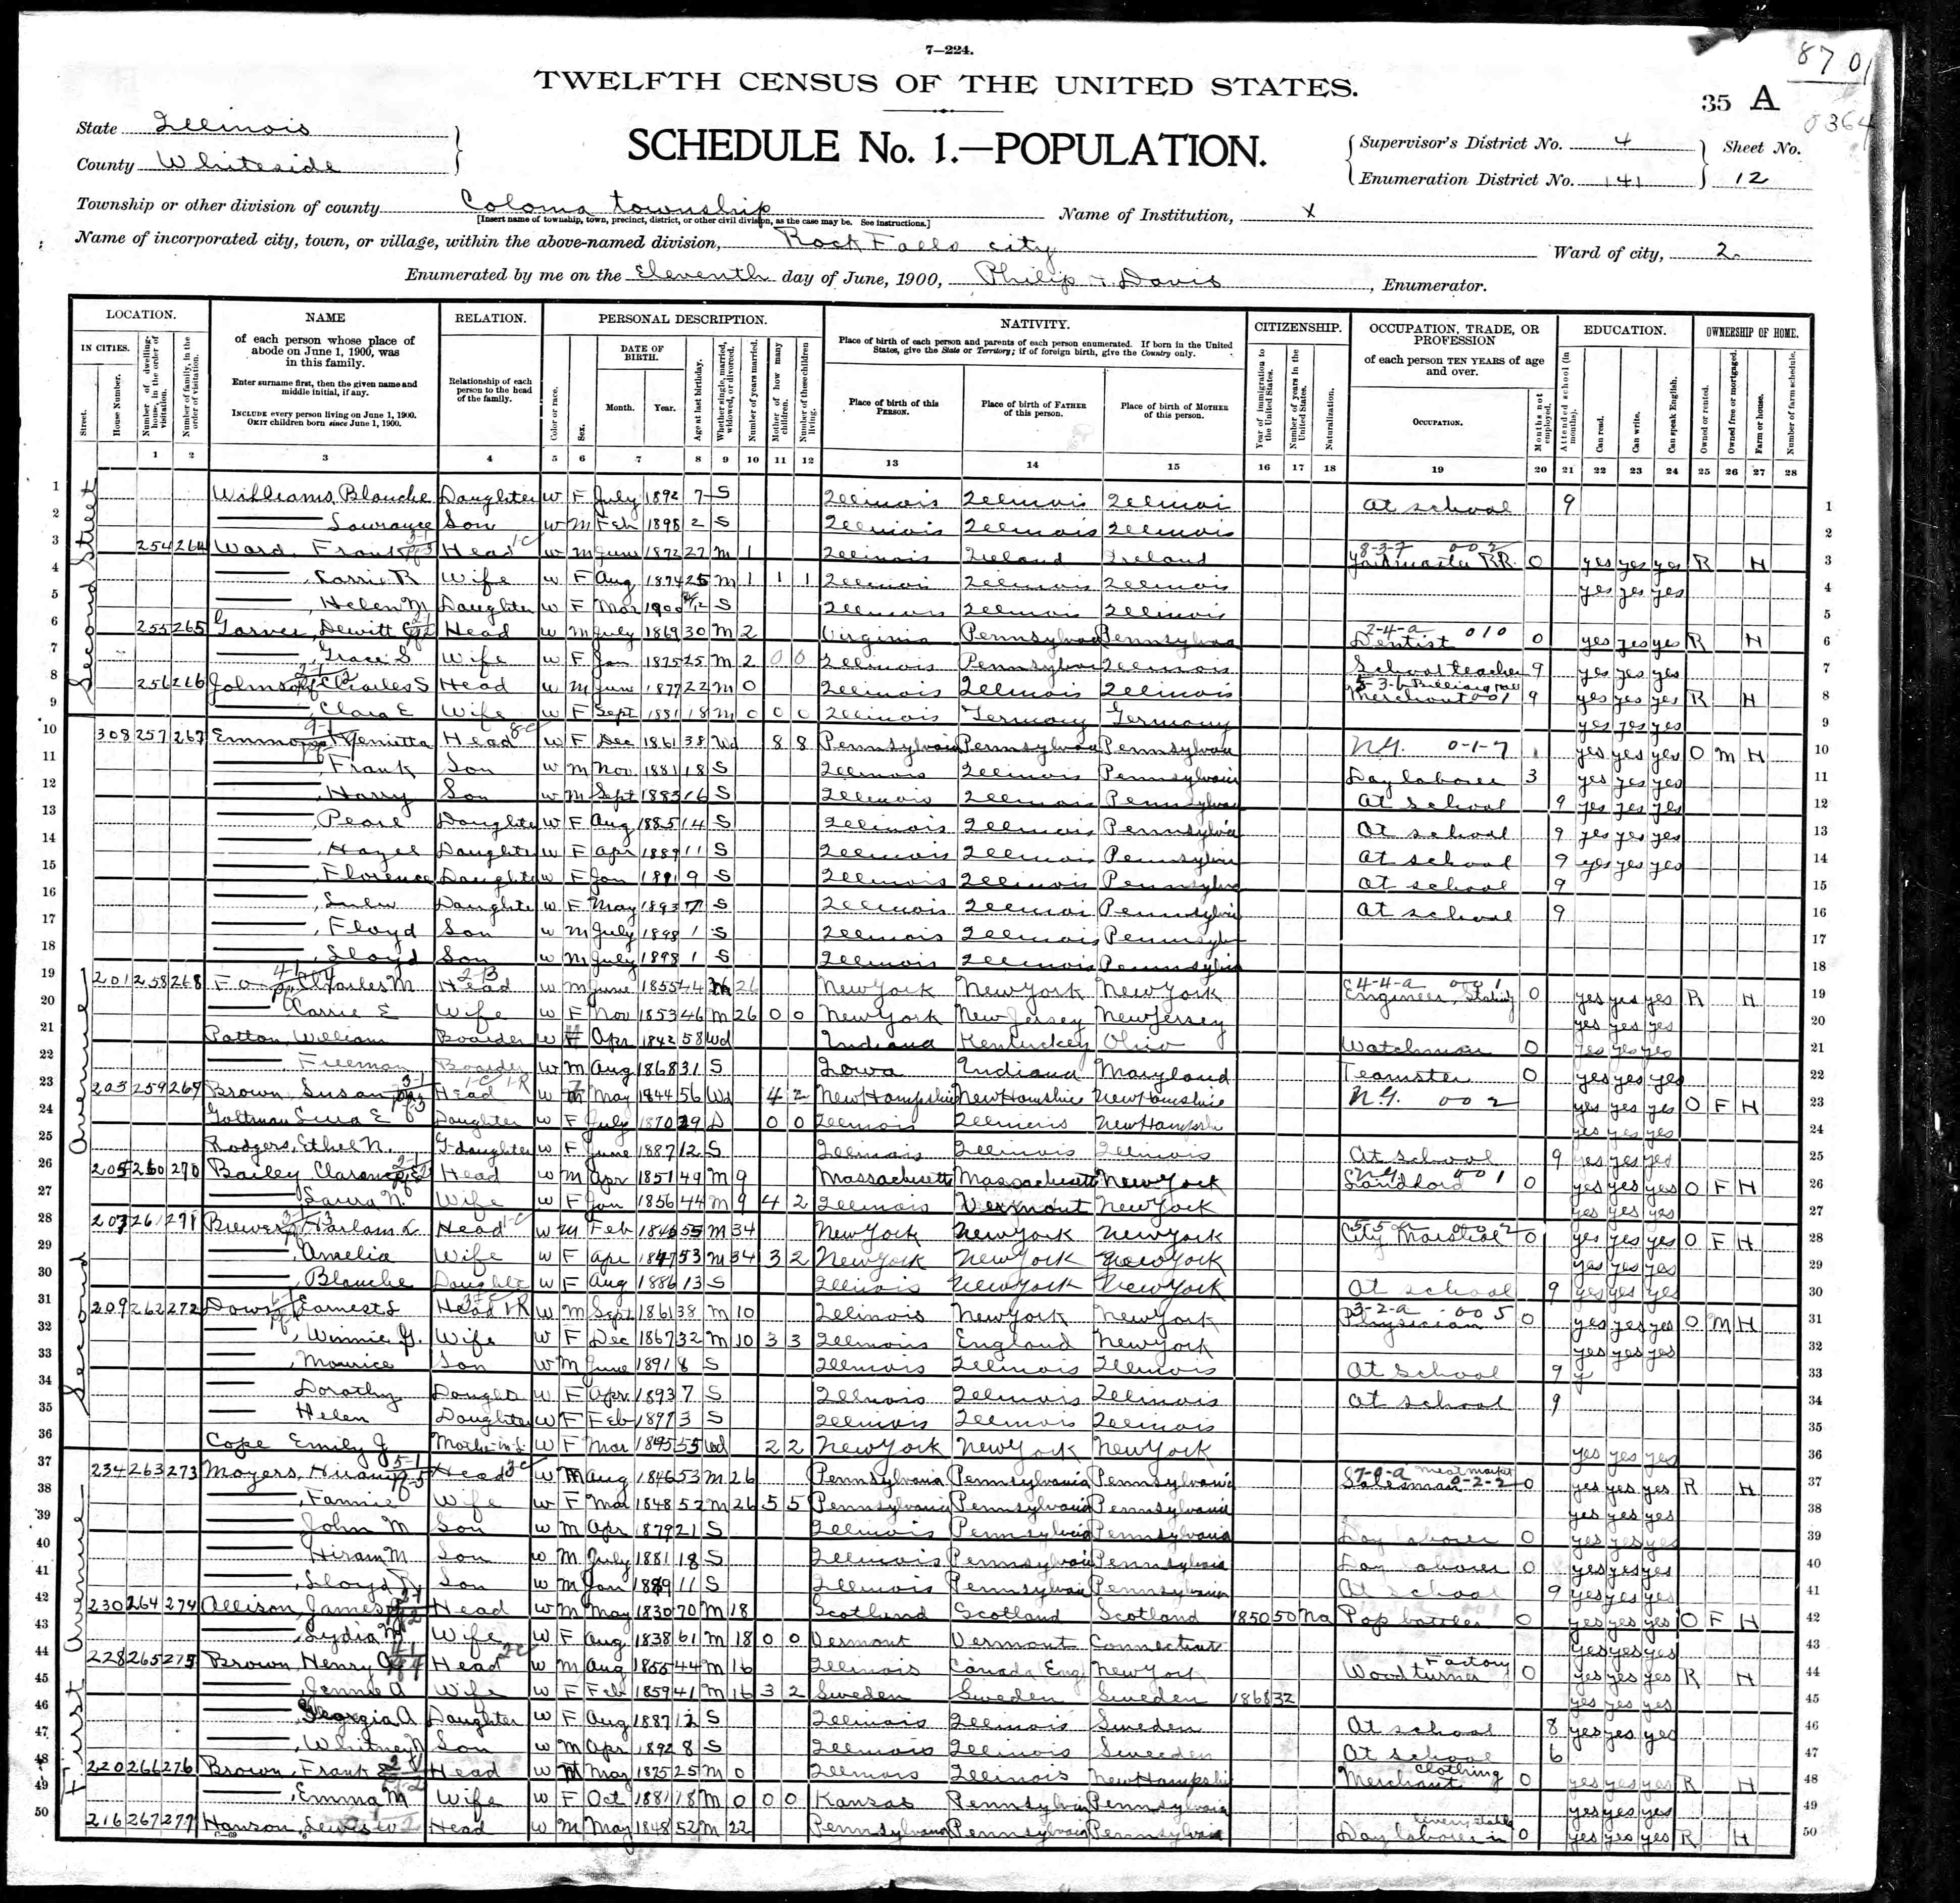 7—224.
TWELFTH CENSUS OF THE UNITED STATES.
8701
35 A
0364
State Illinois
County Whiteside
SCHEDULE No. 1.—POPULATION.
Supervisor's District No. 4
Enumeration District No. 141
Sheet No.
12
Township or other division of county Coloma township
[Insert name of township, town, precinct, district, or other civil division, as the case may be. See instructions.]
Name of Institution, X
Name of incorporated city, town, or village, within the above-named division, Rock Falls city
Ward of city, 2.
Enumerated by me on the Eleventh day of June, 1900, Philip Davis, Enumerator.
LOCATION. NAME RELATION. PERSONAL DESCRIPTION. NATIVITY. CITIZENSHIP. OCCUPATION, TRADE, OR PROFESSION EDUCATION. OWNERSHIP OF HOME.
IN CITIES.
Street.
House Number.
Number of dwelling-house, in the order of visitation.
Number of family, in the order of visitation.
of each person whose place of abode on June 1, 1900, was in this family.
Enter surname first, then the given name and middle initial, if any.
INCLUDE every person living on June 1, 1900.
OMIT children born since June 1, 1900.
Relationship of each person to the head of the family.
Color or race.
Sex.
DATE OF BIRTH.
Month. Year.
Age at last birthday.
Whether single, married, widowed, or divorced.
Number of years married.
Mother of how many children.
Number of these children living.
Place of birth of each person and parents of each person enumerated. If born in the United States, give the State or Territory; if of foreign birth, give the Country only.
Place of birth of this PERSON.
Place of birth of FATHER of this person.
Place of birth of MOTHER of this person.
Year of immigration to the United States.
Number of years in the United States.
Naturalization.
of each person TEN YEARS of age and over.
OCCUPATION.
Months not employed.
Attended school (in months).
Can read.
Can write.
Can speak English.
Owned or rented.
Owned free or mortgaged.
Farm or house.
Number of farm schedule.
1 2 3 4 5 6 7 8 9 10 11 12 13 14 15 16 17 18 19 20 21 22 23 24 25 26 27 28
Second Street
1 Williams, Blanche Daughter W F July 1892 7 S Illinois Illinois Illinois At school 9 1
2 Lawrance Son W M Feb 1898 2 S Illinois Illinois Illinois 2
3 254 264 Ward, Frank Head W M June 1872 27 M 1 Illinois Ireland Ireland Yardmaster RR. 0 yes yes yes R H 3
4 Carrie R Wife W F Aug 1874 25 M 1 1 1 Illinois Illinois Illinois yes yes yes 4
5 Helen M Daughter W F Mar 1900 S Illinois Illinois Illinois 5
6 255 265 Garver, Dewitt Head W M July 1869 30 M 2 Virginia Pennsylvania Pennsylvania Dentist 0 yes yes yes R H 6
7 Grace S Wife W F Jan 1875 25 M 2 0 0 Illinois Pennsylvania Illinois School teacher 9 yes yes yes 7
8 256 266 Johnson, Charles S Head W M June 1877 22 M 0 Illinois Illinois Illinois Billiard Hall Merchant 9 yes yes yes R H 8
9 Clara E Wife W F Sept 1881 18 M 0 0 0 Illinois Germany Germany yes yes yes 9
10 308 257 267 Emmons, Henrietta Head W F Dec 1861 38 Wd 8 8 Pennsylvania Pennsylvania Pennsylvania N.G. 0-1-7 yes yes yes O M H 10
11 Frank Son W M Nov 1881 18 S Illinois Illinois Pennsylvania Day laborer 3 yes yes yes 11
12 Harry Son W M Sept 1883 16 S Illinois Illinois Pennsylvania At school 9 yes yes yes 12
13 Pearl Daughter W F Aug 1885 14 S Illinois Illinois Pennsylvania At school 9 yes yes yes 13
14 Hazel Daughter W F Apr 1889 11 S Illinois Illinois Pennsylvania At school 9 yes yes yes 14
15 Florence Daughter W F Jan 1891 9 S Illinois Illinois Pennsylvania At school 9 15
16 Daughter W F May 1893 7 S Illinois Illinois Pennsylvania At school 9 16
17 Floyd Son W M July 1898 1 S Illinois Illinois Pennsylvania 17
18 Lloyd Son W M July 1898 1 S Illinois Illinois Pennsylvania 18
Second Avenue
19 201 258 268 Charles M Head W M June 1855 44 M 26 New York New York New York Engineer, 0 yes yes yes R H 19
20 Carrie E Wife W F Nov 1853 46 M 26 0 0 New York New Jersey New Jersey yes yes yes 20
21 Patton, William Boarder W Apr 1842 58 Wd Indiana Kentuckey Ohio Watchman 0 yes yes yes 21
22 Freeman Boarder W M Aug 1868 31 S Iowa Indiana Maryland Teamster 0 yes yes yes 22
23 203 259 269 Brown, Susan Head W F May 1844 56 Wd 4 2 New Hampshire New Hamshire New Hamshire N.G. 002 yes yes yes O F H 23
24 Goltman E Daughter W F July 1870 29 D 0 0 Illinois Illinois New Hampshi yes yes yes 24
25 Rodgers, Ethel N. G-daughter W F June 1887 12 S Illinois Illinois Illinois At school 9 yes yes yes 25
26 205 260 270 Bailey, Clarence Head W M Apr 1851 49 M 9 Massachusetts Massachusetts New York Landlord 0 yes yes yes O F H 26
27 Laura N. Wife W F Jan 1856 44 M 9 4 2 Illinois Vermont New York yes yes yes 27
28 207 261 271 Brewer, Harlam L Head W M Feb 1845 55 M 34 New York New York New York City Marshal 0 yes yes yes O F H 28
29 Amelia Wife W F Apr 1847 53 M 34 3 2 New York New York New York yes yes yes 29
30 Blanche Daughter W F Aug 1886 13 S Illinois New York New York At school 9 yes yes yes 30
31 209 262 272 Earnest L Head W M Sept 1861 38 M 10 Illinois New York New York Physician 0 yes yes yes O M H 31
32 Winnie G. Wife W F Dec 1867 32 M 10 3 3 Illinois England New York yes yes yes 32
33 Maurice Son W M June 1891 8 S Illinois Illinois Illinois At school 9 y 33
34 Dorothy Daughter W F Apr. 1893 7 S Illinois Illinois Illinois At school 9 34
35 Helen Daughter W F Feb 1897 3 S Illinois Illinois Illinois 35
36 Cope Emily J Mother-in-L W F Mar 1845 55 Wd 2 2 New York New York New York yes yes yes 36
First Avenue
37 234 263 273 Moyers, Hiram Head W M Aug 1846 53 M 26 Pennsylvania Pennsylvania Pennsylvania Salesman meat market 0 yes yes yes R H 37
38 Fannie Wife W F Mar 1848 52 M 26 5 5 Pennsylvania Pennsylvania Pennsylvania yes yes yes 38
39 John M Son W M Apr 1879 21 S Illinois Pennsylvania Pennsylvania Day laborer 0 yes yes yes 39
40 Hiram M Son W M July 1881 18 S Illinois Pennsylvania Pennsylvania Day laborer 0 yes yes yes 40
41 Lloyd Son W M Jan 1889 11 S Illinois Pennsylvania Pennsylvania At school 9 yes yes yes 41
42 230 264 274 Allison, James Head W M May 1830 70 M 18 Scotland Scotland Scotland 1850 50 Na Pop bottler 0 yes yes yes O F H 42
43 Lydia M Wife W F Aug 1838 61 M 18 0 0 Vermont Vermont Connecticut yes yes yes 43
44 228 265 275 Brown, Henry Head W M Aug 1855 44 M 16 Illinois Canada Eng New York Wood turner Factory 0 yes yes yes R H 44
45 Jennie A Wife W F Feb 1859 41 M 16 3 2 Sweden Sweden Sweden 1868 32 yes yes yes 45
46 Georgia A Daughter W F Aug 1887 12 S Illinois Illinois Sweden At school 8 yes yes yes 46
47 Whitney Son W M Apr 1892 8 S Illinois Illinois Sweeden At school 6 47
48 220 266 276 Brown, Frank E Head W M May 1875 25 M 0 Illinois Illinois New Hampshi Merchant clothing 0 yes yes yes R H 48
49 Emma M Wife W F Oct 1881 18 M 0 0 0 Kansas Pennsylvania Pennsylvania yes yes yes 49
50 216 267 277 Lewis W Head W M May 1848 52 M 22 Pennsylvania Pennsylvania Pennsylvania Day laborer in livery stable 0 yes yes yes R H 50